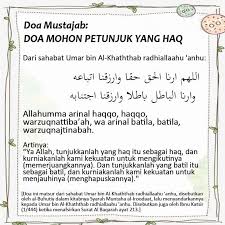 Doa Mustajab:
DOA MOHON PETUNJUK YANG HAQ
Dari sahabat Umar bin Al-Khaththab radhiallaahu 'anhu:
اللهم ارنا الحق حقا وارزقنا اتباعه
وارنا الباطل باطلا وارزقنا اجتنابه
Allahumma arinal haqqo, haqqo,
warzuqnattiba'ah, wa arinal batila, batila,
warzuqnajtinabah.
Artinya:
"Ya Allah, tunjukkanlah yang haq itu sebagai haq, dan
kurniakanlah kami kekuatan untuk mengikutinya
(memerjuangkannya). Dan tunjukkanlah yang batil itu
sebagai batil, dan kurniakanlah kami kekuatan untuk
menjauhinya (menghapuskannya)."
[Doa ini matsur dari sahabat Umar bin Al-Khaththab radhiallaahu 'anhu, disebutkan
oleh al-Buhutia dalam kitabnya Syarah Muntaha al-Iroodaat, lalu menyandarkannya
kepada Umar bin Al-Khaththab radhiallaahu 'anhu. Disebutkan juga oleh Ibnu Katsir
(1/444) ketika menafsirkan Surat Al Baqarah ayat 213.]